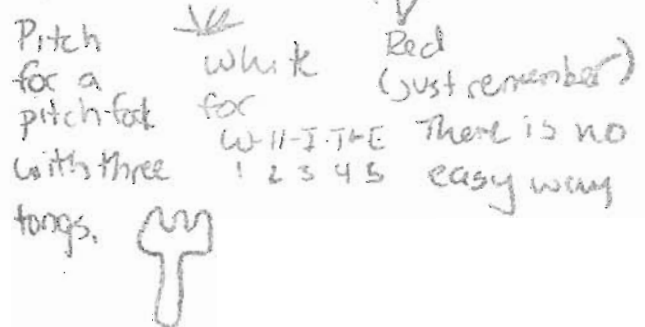 Pitch
for a
pitch-fork
with three
tongs.
White
for
W-H-I-T-E
1 2 3 4 5
Red
(just remember)
There is no
easy way